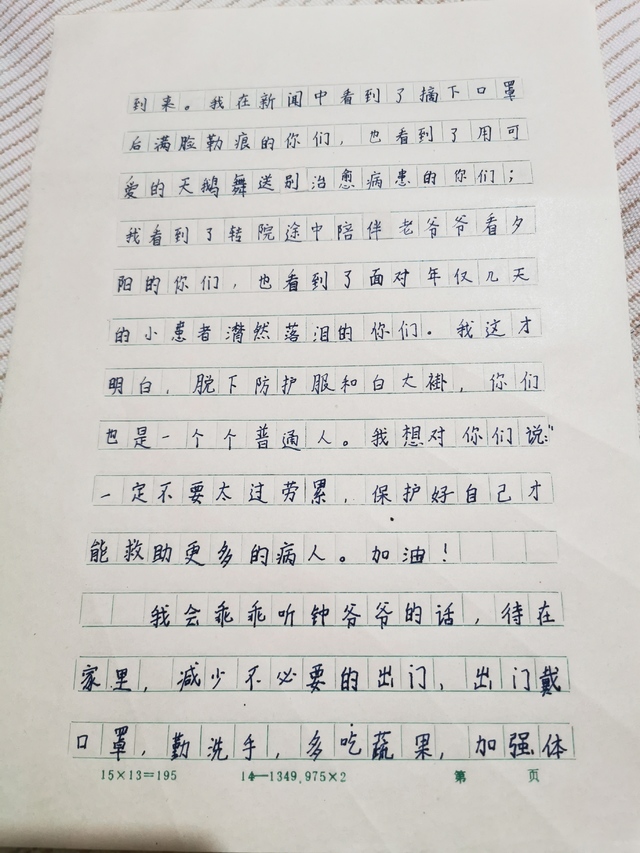 到来。我在新闻中看到了摘下口罩
后满脸勒痕的你们，也看到了用可
爱的天鹅舞送别治愈病患的你们；
我看到了转院途中陪伴老爷爷看夕
阳的你们，也看到了面对年仅几天
的小患者潸然落泪的你们。我这才
明白，脱下防护服和白大褂，你们
也是一个个普通人。我想对你们说：“
一定不要太过劳累，保护好自己才
能救助更多的病人。加油！
我会乖乖听钟爷爷的话，待在
家里，减少不必要的出门，出门戴
口罩，勤洗手，多吃蔬果，加强体
15×13=195 14—1349.975×2 第 页